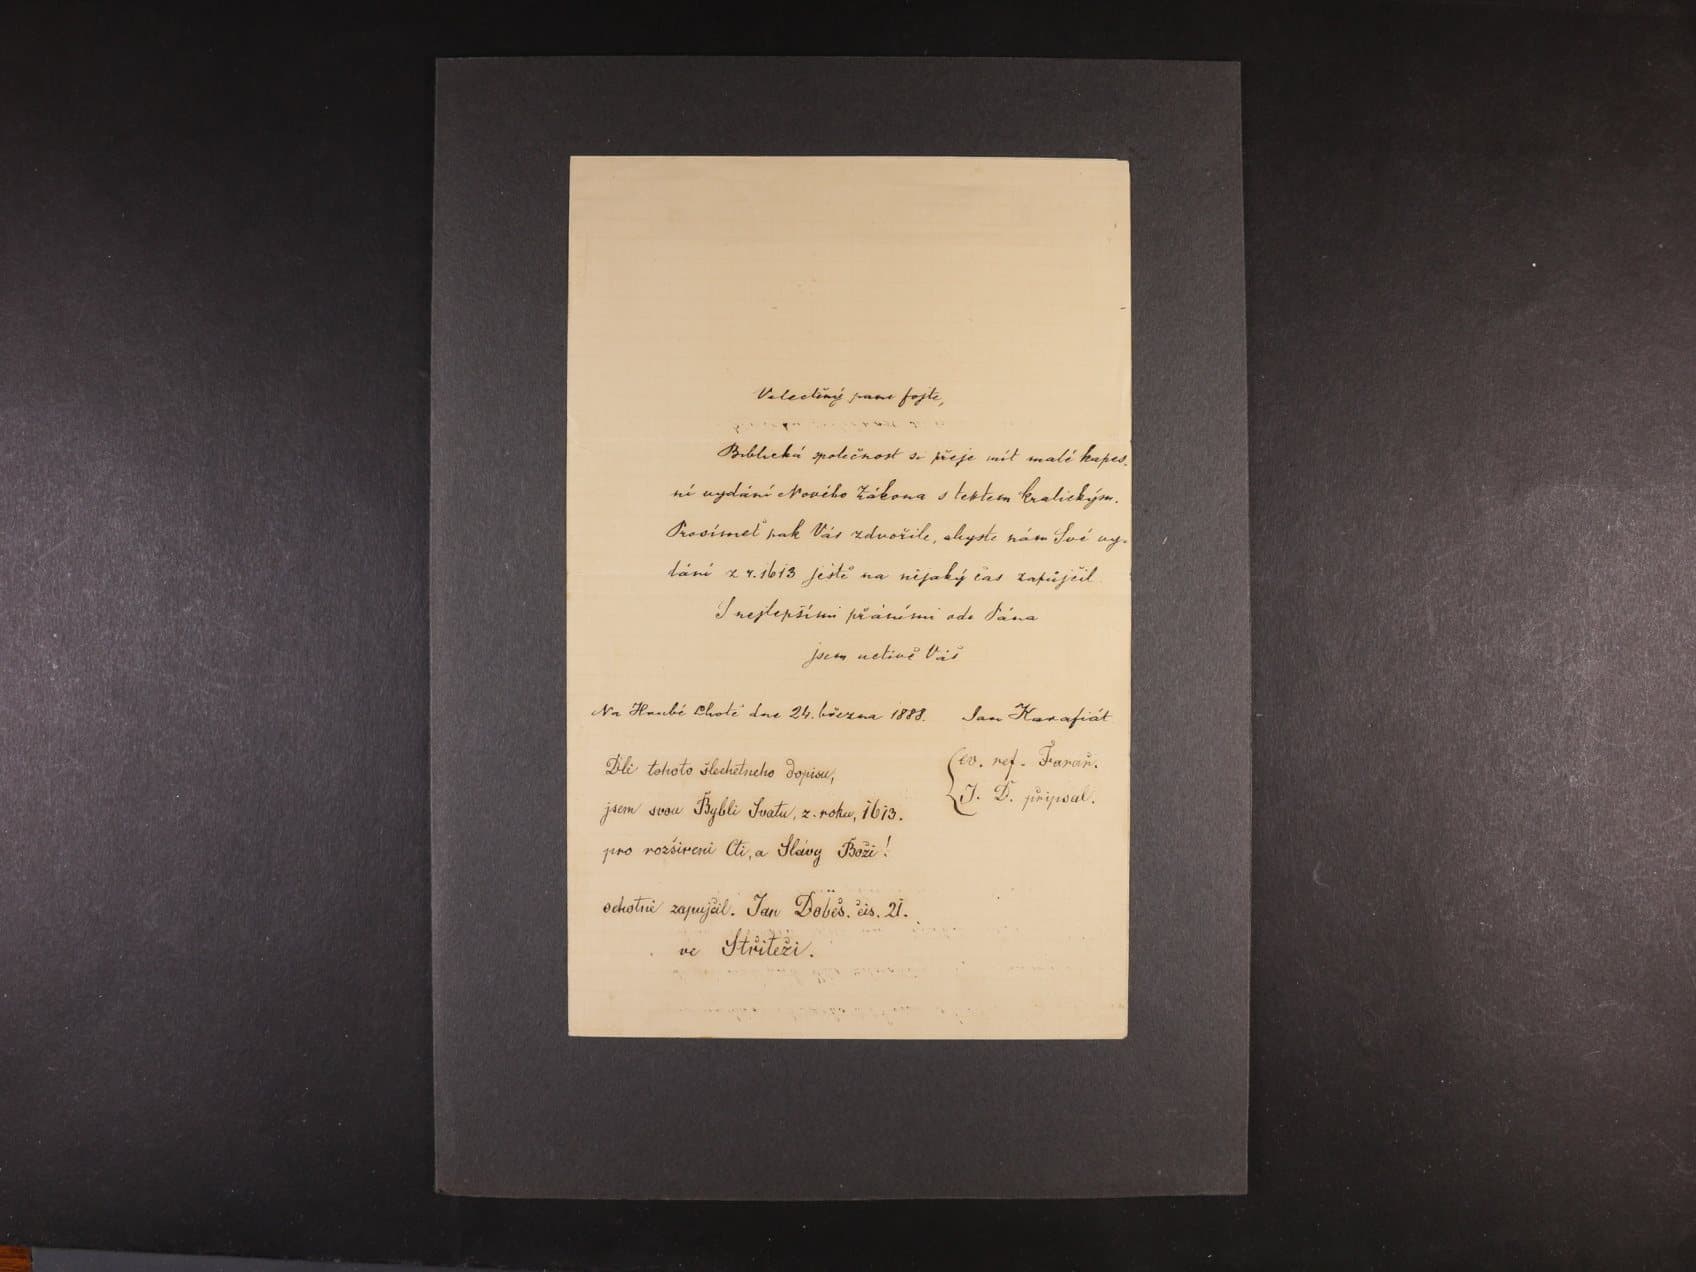 Velectěný pane fojte,
Biblická společnost si přeje mít malé kapes-
ní vydání Nového Zákona s textem kralickým.
Prosímeť pak Vás zdvořile, abyste nám Své vy-
dání z r. 1613 ještě na nějaký čas zapůjčil
S nejlepšími přáními ode Pána
jsem uctivě Váš
Na Hrubé Lhotě dne 24. března 1888. Jan Karafiát
ev. ref. Farař.
J. D. připsal.
Dli tohoto šlechetneho dopisu,
jsem svou Bybli Svatu, z. roku, 1613.
pro rozšireni Cti, a Slávy Boži!
ochotně zapujčil. Jan Doběš. čis. 21.
ve Střiteži.